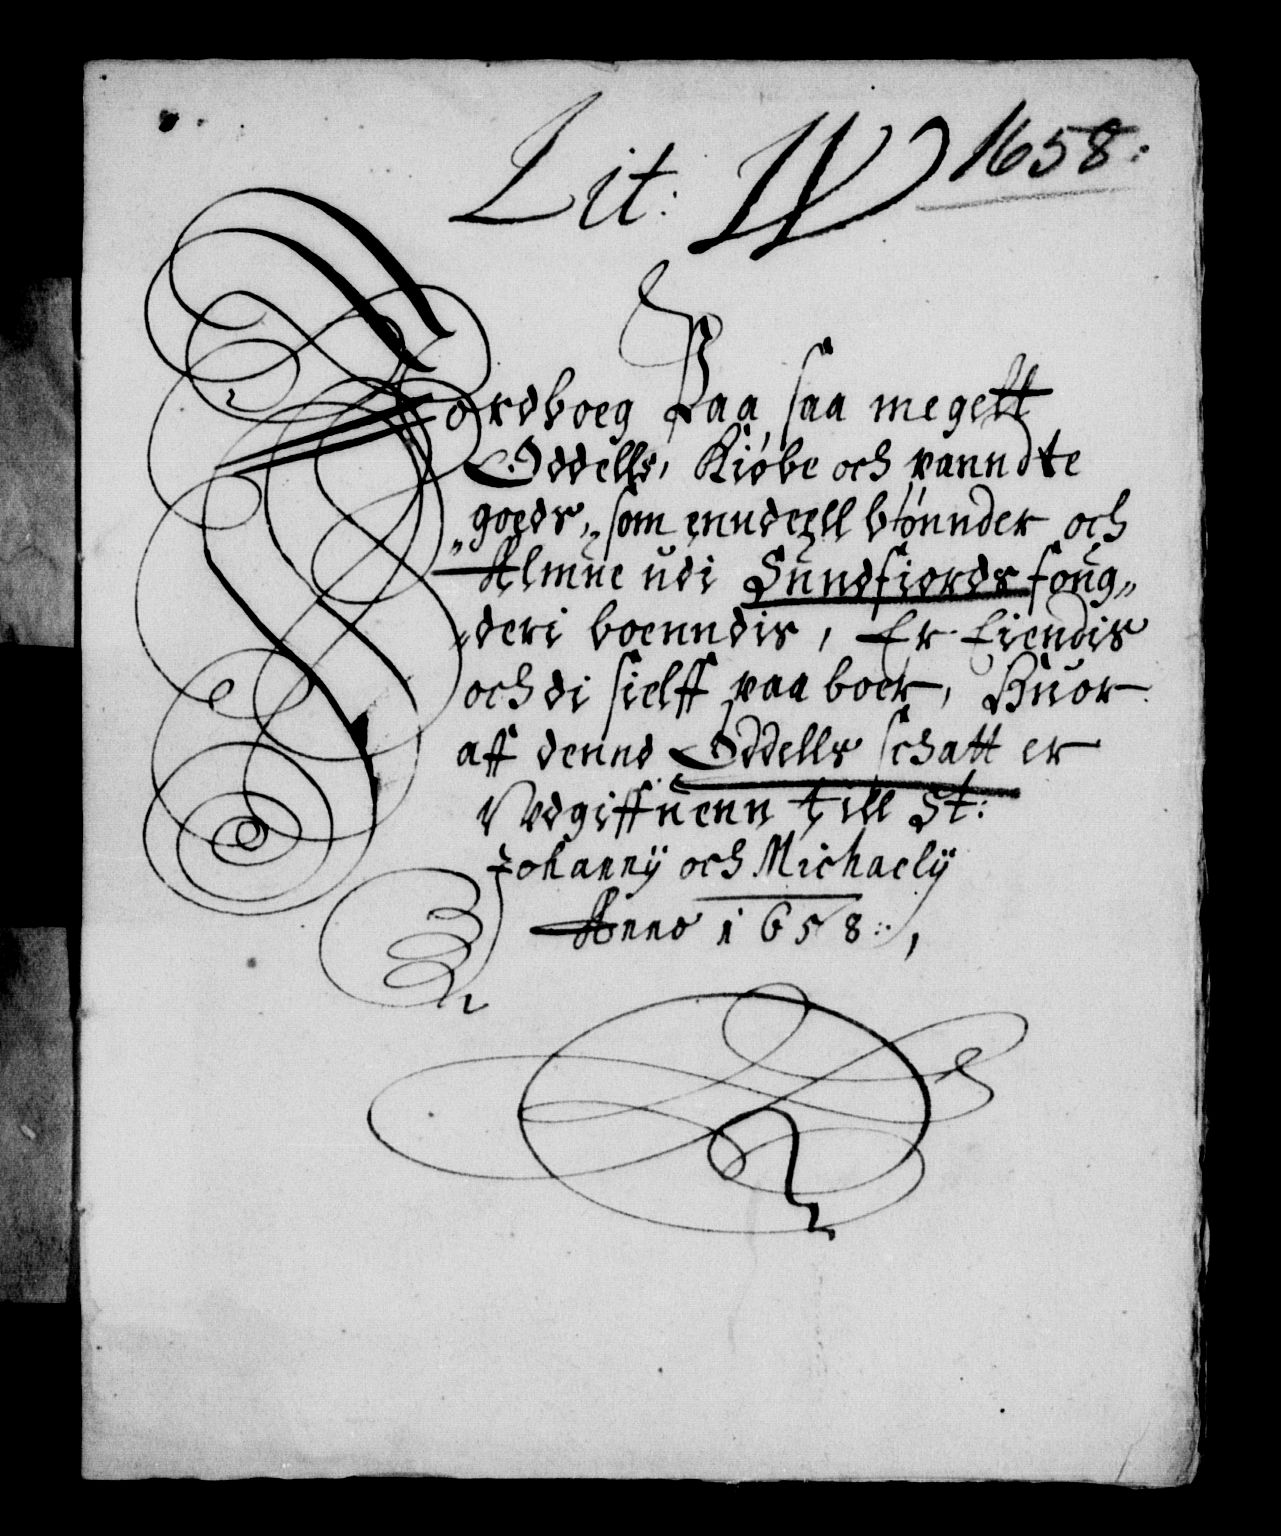 Lit: W 1658:
Jordboeg Paa saa megett
Oddells, Kiøbe och panndte
goeds, som enndeell bønnder och
Almue udi Sundfiords foug-
deri boenndis, Er Eiendis
och di sielff paa boer, Huor
aff denne Oddells schatt er
Vdgiffuenn till St:
Johannÿ och Michaelÿ
Anno 1658:,